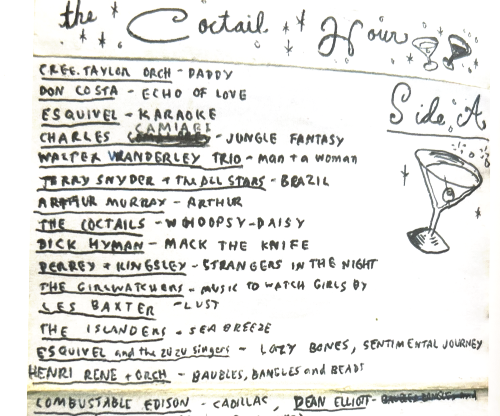 the Coctail Hour
Side A
CREE. TAYLOR ORCH - DADDY
DON COSTA - ECHO OF LOVE
ESQUIVEL - KARAOKE
CHARLES CAMIAEL - JUNGLE FANTASY
WALTER WANDERLEY TRIO - Man + a woman
TERRY SNYDER + THE ALL STARS - BRAZIL
ARTHUR MURRAY - ARTHUR
THE COCTAILS - WHOOPSY-DAISY
DICK HYMAN - MACK THE KNIFE
PERREY + KINGSLEY - STRANGERS IN THE NIGHT
THE GIRLWATCHERS - MUSIC TO WATCH GIRLS BY
LES BAXTER - LUST
THE ISLANDERS - SEA BREEZE
ESQUIVEL and the zu zu singers - LAZY BONES, SENTIMENTAL JOURNEY
HENRI RENE + ORCH - BAUBLES, BANGLES and BEADS
COMBUSTABLE EDISON - CADILLAC, DEAN ELLIOTT -